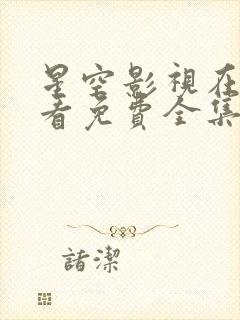 星空影視在
看免費全集
諸潔